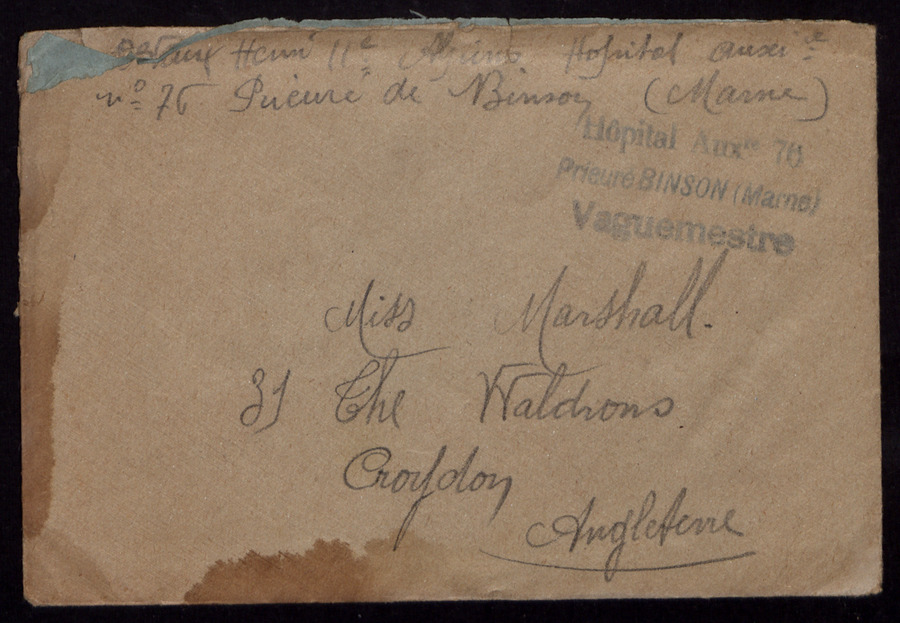 Henri 11e Hôpital auxre
no 76 Prieuré de Binson (Marne)
Hôpital Auxre 76
Prieuré BINSON (Marne)
Vaguemestre
Miss Marshall.
31 The Waldrons
Croydon
Angleterre